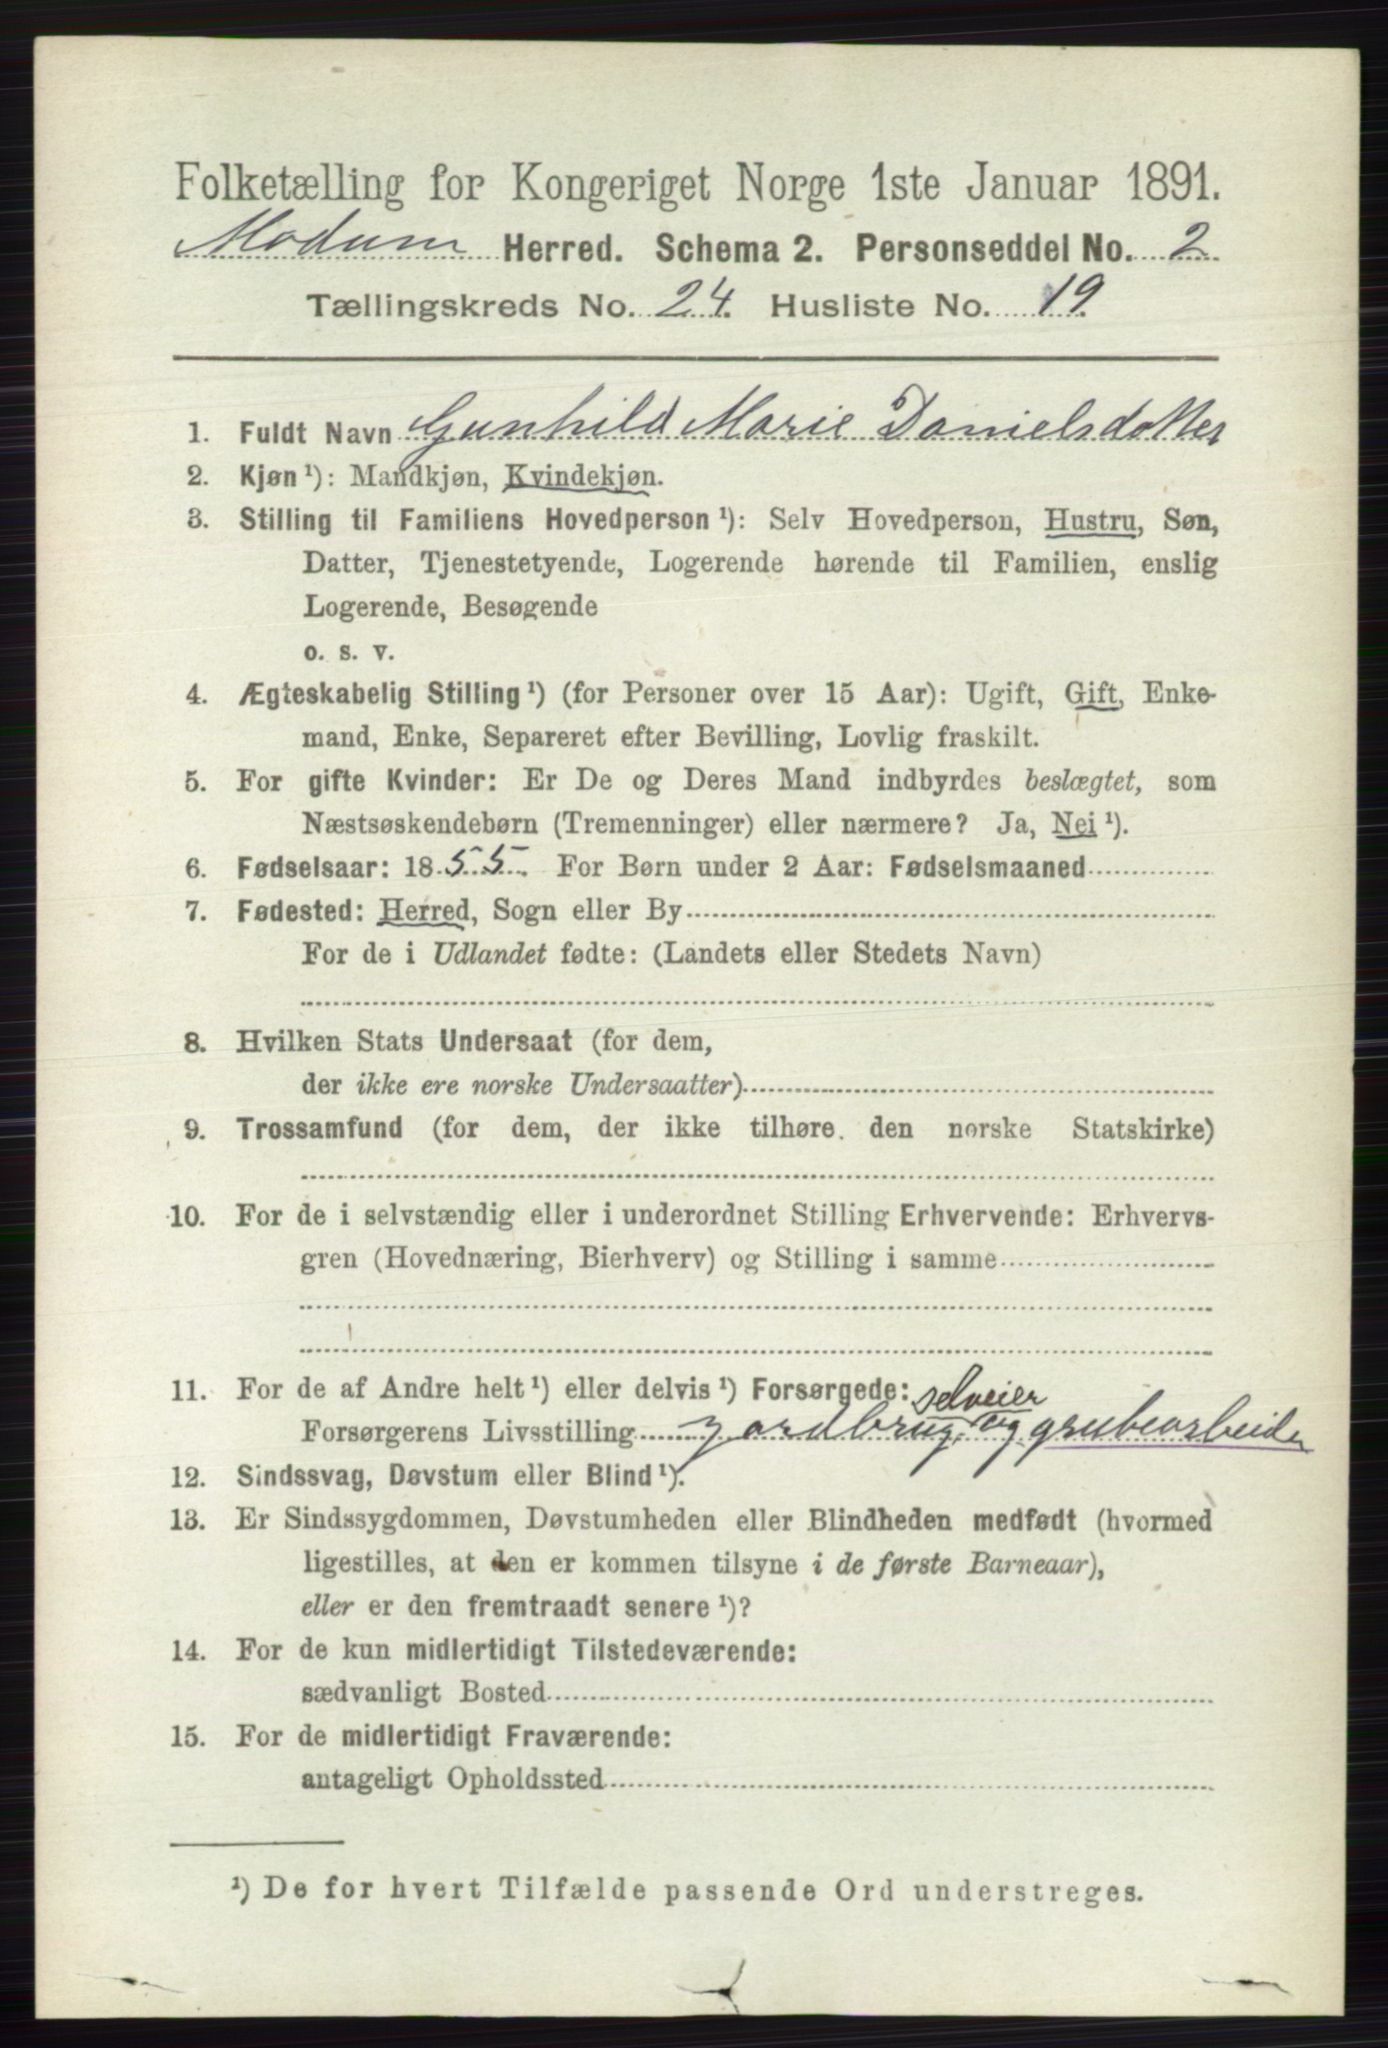 Folketælling for Kongeriget Norge 1ste Januar 1891.
Modum Herred. Schema 2. Personseddel No. 2
Tællingskreds No. 24. Husliste No. 19.
1. Fuldt Navn Gunhild Marie Danielsdatter
2. Kjøn ¹): Mandkjøn, Kvindekjøn.
3. Stilling til Familiens Hovedperson ¹): Selv Hovedperson, Hustru, Søn,
Datter, Tjenestetyende, Logerende hørende til Familien, enslig
Logerende, Besøgende
o. s. v.
4. Ægteskabelig Stilling ¹) (for Personer over 15 Aar): Ugift, Gift, Enke-
mand, Enke, Separeret efter Bevilling, Lovlig fraskilt.
5. For gifte Kvinder: Er De og Deres Mand indbyrdes beslægtet, som
Næstsøskendebørn (Tremenninger) eller nærmere? Ja, Nei ¹).
6. Fødselsaar: 1855. For Børn under 2 Aar: Fødselsmaaned
7. Fødested: Herred, Sogn eller By
For de i Udlandet fødte: (Landets eller Stedets Navn)
8. Hvilken Stats Undersaat (for dem,
der ikke ere norske Undersaatter)
9. Trossamfund (for dem, der ikke tilhøre den norske Statskirke)
10. For de i selvstændig eller i underordnet Stilling Erhvervende: Erhvervs-
gren (Hovednæring, Bierhverv) og Stilling i samme
11. For de af Andre helt ¹) eller delvis ¹) Forsørgede: selveier
Forsørgerens Livsstilling jordbrug, og grubearbeider
12. Sindssvag, Døvstum eller Blind ¹).
13. Er Sindssygdommen, Døvstumheden eller Blindheden medfødt (hvormed
ligestilles, at den er kommen tilsyne i de første Barneaar),
eller er den fremtraadt senere ¹)?
14. For de kun midlertidigt Tilstedeværende:
sædvanligt Bosted
15. For de midlertidigt Fraværende:
antageligt Opholdssted
¹) De for hvert Tilfælde passende Ord understreges.